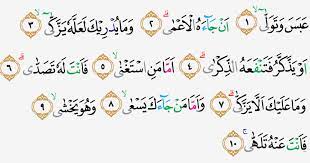 عَبَسَ وَتَوَلّٰىٓ ۙ ١ اَنْ جَاۤءَهُ الْاَعْمٰىۗ ٢ وَمَا يُدْرِيْكَ لَعَلَّهٗ يَزَّكّٰىٓ ۙ ٣
اَوْ يَذَّكَّرُ فَتَنْفَعَهُ الذِّكْرٰىۗ ٤ اَمَّا مَنِ اسْتَغْنٰىۙ ٥ فَاَنْتَ لَهٗ تَصَدّٰىۗ ٦
وَمَا عَلَيْكَ اَلَّا يَزَّكّٰىۗ ٧ وَاَمَّا مَنْ جَاۤءَكَ يَسْعٰىۙ ٨ وَهُوَ يَخْشٰىۙ ٩
فَاَنْتَ عَنْهُ تَلَهّٰىۚ ١٠